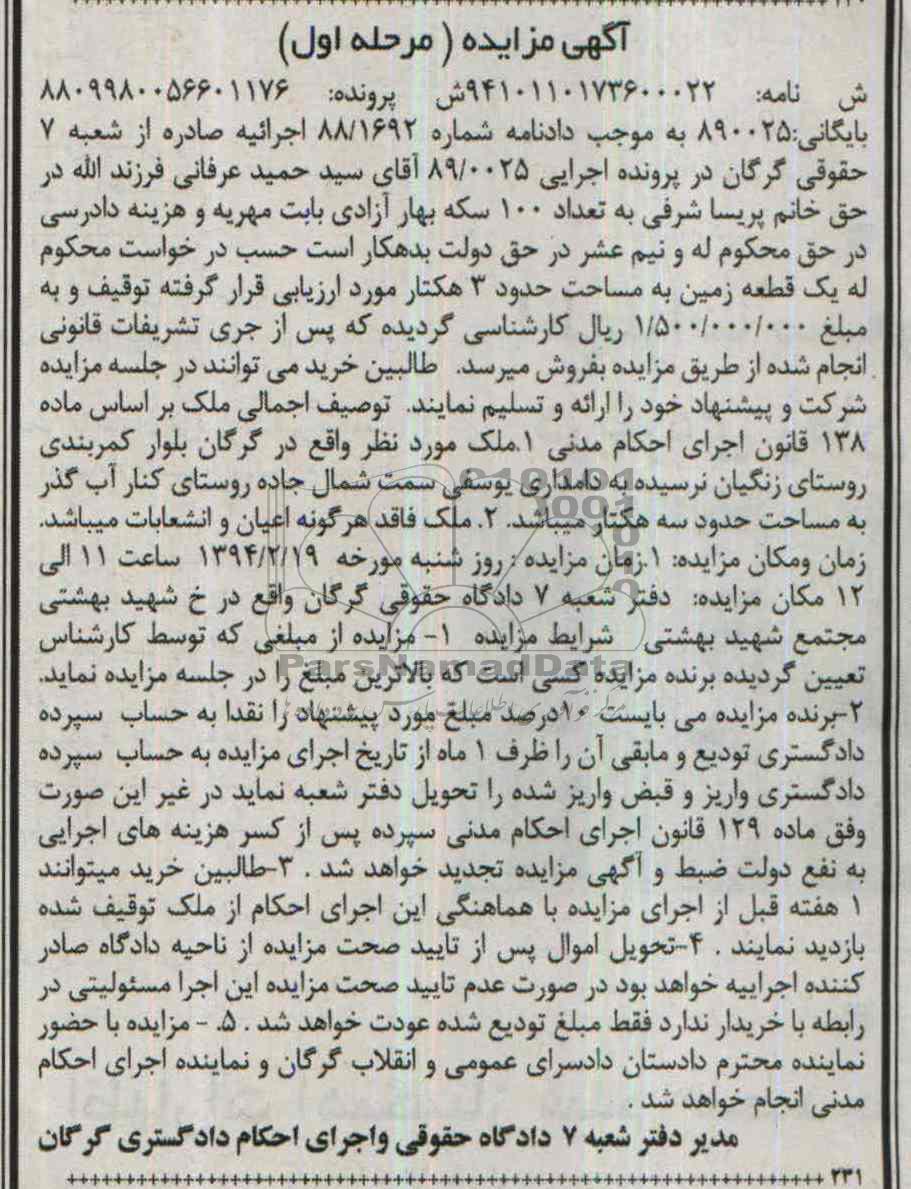 آگهی مزایده ( مرحله اول)
ش نامه: ۹۴۱۰۱۱۰۱۷۳۶۰۰۰۲۲ش پرونده: ۸۸۰۹۹۸۰۰۵۶۶۰۱۱۷۶
بایگانی:۸۹۰۰۲۵ به موجب دادنامه شماره ۸۸/۱۶۹۲ اجرائیه صادره از شعبه ۷
حقوقی گرگان در پرونده اجرایی ۸۹/۰۰۲۵ آقای سید حمید عرفانی فرزند الله در
حق خانم پریسا شرفی به تعداد ۱۰۰ سکه بهار آزادی بابت مهریه و هزینه دادرسی
در حق محکوم له و نیم عشر در حق دولت بدهکار است حسب در خواست محکوم
له یک قطعه زمین به مساحت حدود ۳ هکتار مورد ارزیابی قرار گرفته توقیف و به
مبلغ ۱/۵۰۰/۰۰۰/۰۰۰ ریال کارشناسی گردیده که پس از جری تشریفات قانونی
انجام شده از طریق مزایده بفروش میرسد. طالبین خرید می توانند در جلسه مزایده
شرکت و پیشنهاد خود را ارائه و تسلیم نمایند. توصیف اجمالی ملک بر اساس ماده
۱۳۸ قانون اجرای احکام مدنی ۱.ملک مورد نظر واقع در گرگان بلوار کمربندی
روستای زنگیان نرسیده به دامداری یوسفی سمت شمال جاده روستای کنار آب گذر
به مساحت حدود سه هکتار میباشد. ۲. ملک فاقد هرگونه اعیان و انشعابات میباشد.
زمان ومکان مزایده: ۱.زمان مزایده : روز شنبه مورخه ۱۳۹۴/۲/۱۹ ساعت ۱۱ الی
۱۲ مکان مزایده: دفتر شعبه ۷ دادگاه حقوقی گرگان واقع در خ شهید بهشتی
مجتمع شهید بهشتی شرایط مزایده ۱- مزایده از مبلغی که توسط کارشناس
تعیین گردیده برنده مزایده کسی است که بالاترین مبلغ را در جلسه مزایده نماید.
۲-برنده مزایده می بایست ۱۰درصد مبلغ مورد پیشنهاد را نقدا به حساب سپرده
دادگستری تودیع و مابقی آن را ظرف ۱ ماه از تاریخ اجرای مزایده به حساب سپرده
دادگستری واریز و قبض واریز شده را تحویل دفتر شعبه نماید در غیر این صورت
وفق ماده ۱۲۹ قانون اجرای احکام مدنی سپرده پس از کسر هزینه های اجرایی
به نفع دولت ضبط و آگهی مزایده تجدید خواهد شد . ۳-طالبین خرید میتوانند
۱ هفته قبل از اجرای مزایده با هماهنگی این اجرای احکام از ملک توقیف شده
بازدید نمایند . ۴-تحویل اموال پس از تایید صحت مزایده از ناحیه دادگاه صادر
کننده اجراییه خواهد بود در صورت عدم تایید صحت مزایده این اجرا مسئولیتی در
رابطه با خریدار ندارد فقط مبلغ تودیع شده عودت خواهد شد . ۵. - مزایده با حضور
نماینده محترم دادستان دادسرای عمومی و انقلاب گرگان و نماینده اجرای احکام
مدنی انجام خواهد شد .
مدیر دفتر شعبه ۷ دادگاه حقوقی واجرای احکام دادگستری گرگان
۲۳۱
ParsNamadData